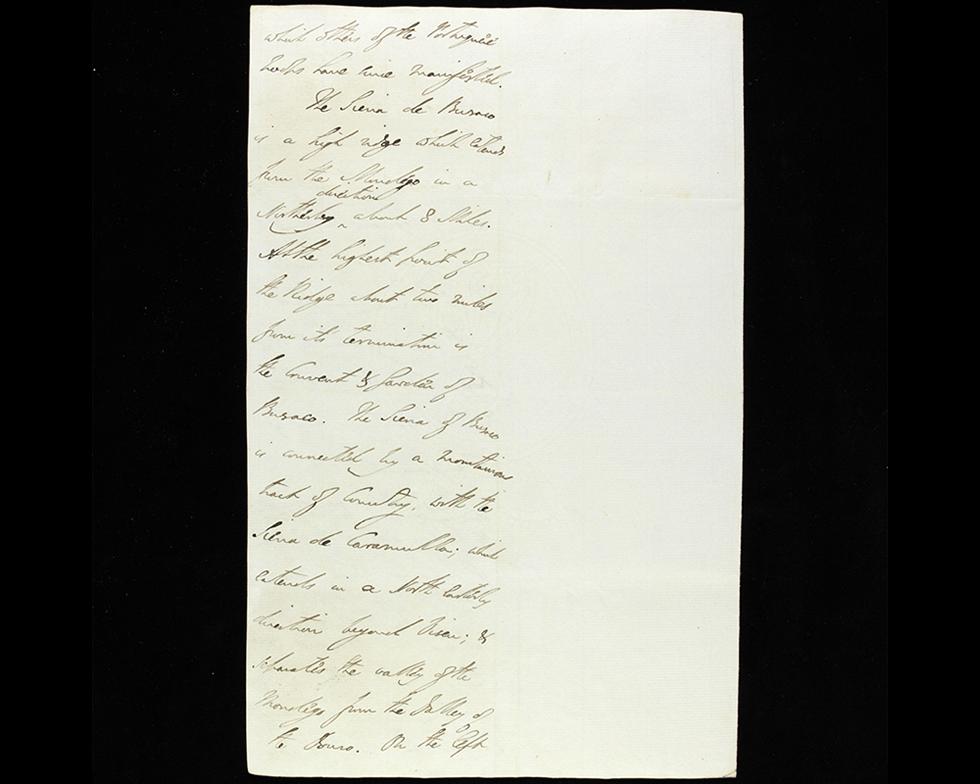 which others of the Portuguese
troops have since manifested.
The Sierra de Busaco
is a high ridge which extends
from the Mondego in a
direction
Northerly ^ about 8 Miles.
At the highest point of
the Ridge about two miles
from its termination is
the Convent & Garden of
Busaco. The Sierra of Busaco
is connected by a mountainous
tract of Country, with the
Sierra de Caramulla; which
extends in a North Easterly
direction beyond Viseu; &
separates the valley of the
Mondego from the Valley of
the Douro. On the left